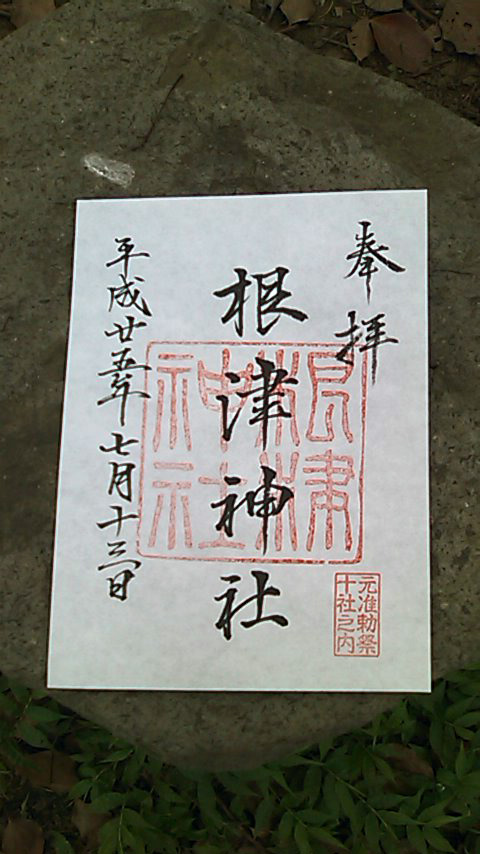 奉拝
根津神社
平成廿五年七月十三日
根津神社
元准勅祭
十社之内